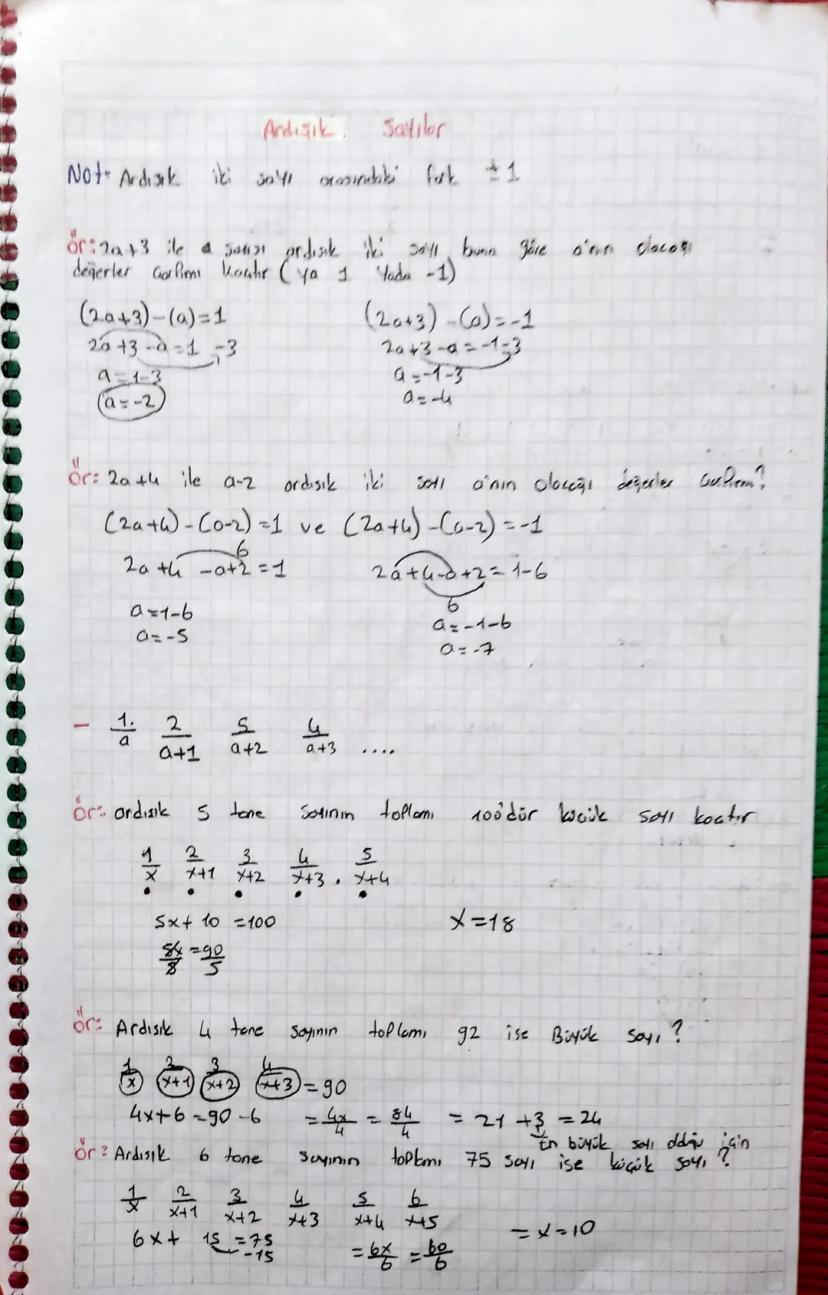 Ardışık Sayılar
Not: Ardışık iki sayı arasındaki fark ±1
ör: 2a+3 ile a sayısı ardışık iki sayı buna göre a'nın olacağı
değerler çarpımı kaçtır (ya 1 yada -1)
(2a+3)-(a)=1 (2a+3)-(a)=-1
2a+3-a=1-3 2a+3-a=-1-3
a=1-3 a=-1-3
a=-2 a=-4
ör: 2a+4 ile a-2 ardışık iki sayı a'nın olacağı değerler çarpım?
(2a+4)-(a-2)=1 ve (2a+4)-(a-2)=-1
6
2a+4-a+2=1 2a+4-a+2=1-6
6
a=1-6 a=-1-6
a=-5 a=-7
- 1./a 2/a+1 5/a+2 4/a+3 ....
ör: ardışık 5 tane sayının toplamı 100'dür küçük sayı kaçtır
1/x 2/x+1 3/x+2 4/x+3 . 5/x+4
5x+10=100 x=18
5x/5=90/5
ör: Ardışık 4 tane sayının toplamı 92 ise Büyük sayı?
1/x 2/x+1 3/x+2 4/x+3 =90
4x+6=90-6 =4x/4=84/4 =21+3=24
En büyük sayı olduğu için
ör: Ardışık 6 tane sayının toplamı 75 sayı ise küçük sayı?
1/x 2/x+1 3/x+2 4/x+3 5/x+4 6/x+5
6x+15=75 =6x/6=60/6 =x=10
-15